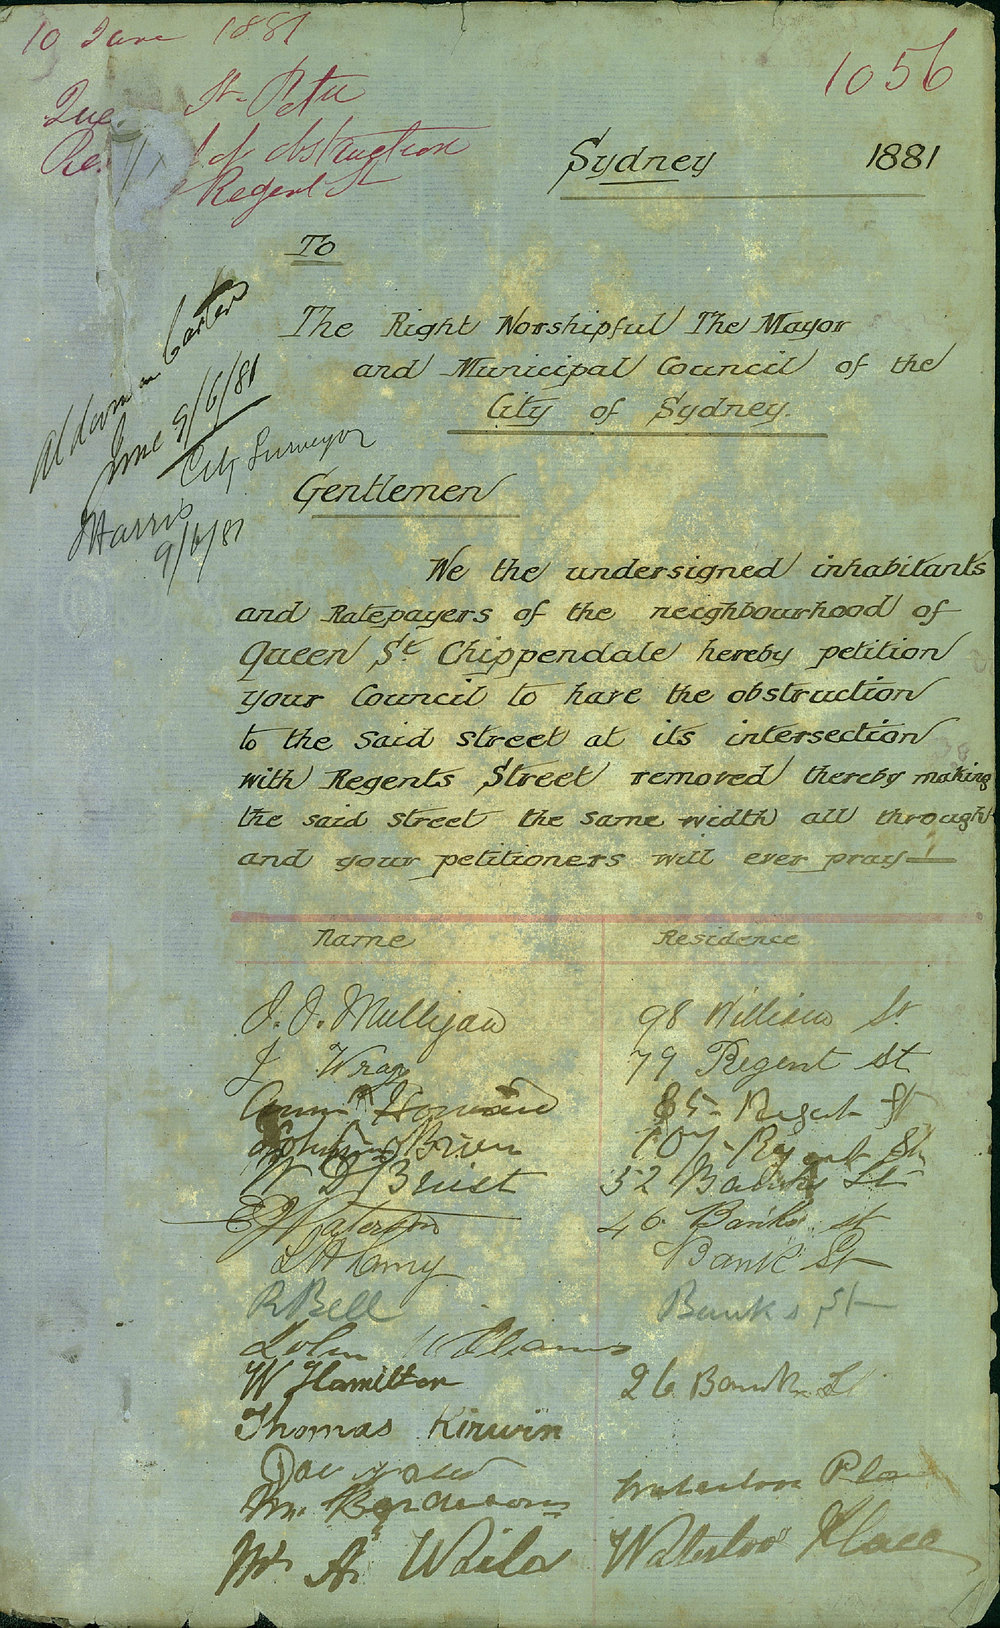 10 June 1881
1056
Que. St. Peti
Re. of obstruction
Regent St
Sydney 1881
To
The Right Worshipful The Mayor
and Municipal Council of the
City of Sydney.
Alderman Carters
June 9/6/81
City Surveyor
Harris
9/6/81
Gentlemen
We the undersigned inhabitants
and Ratepayers of the neighbourhood of
Queen St. Chippendale hereby petition
your Council to have the obstruction
to the said street at its intersection
with Regents Street removed thereby making
the said street the same width all through
and your petitioners will ever pray
Name Residence
J. J. Mulligan 98 William St
J Wray 79 Regent St
Howard 85 Regent St
John Brien 107 Regent St
W D Briest 52 Banks St
E Waterson 46 Banks st
Bank St
R Bell Banks St
John Williams
W Hamilton 26 Bank St
Thomas Kirwin
Mr. Waterloo Pla
Mr A. Waterloo Place